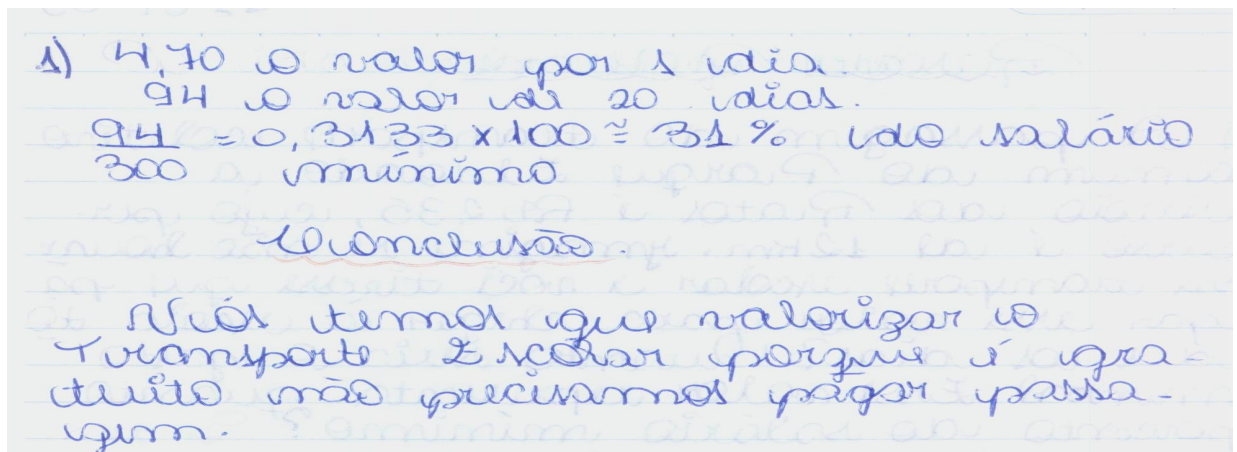 1) 4,70 o valor por 1 dia.
94 o valor de 20 dias.
94/300 = 0,3133 x 100 ≅ 31 % do salário
mínimo
Conclusão.
Nós temos que valorizar o
Transporte Escolar porque é gra
tuito não precisamos pagar passa-
gem.